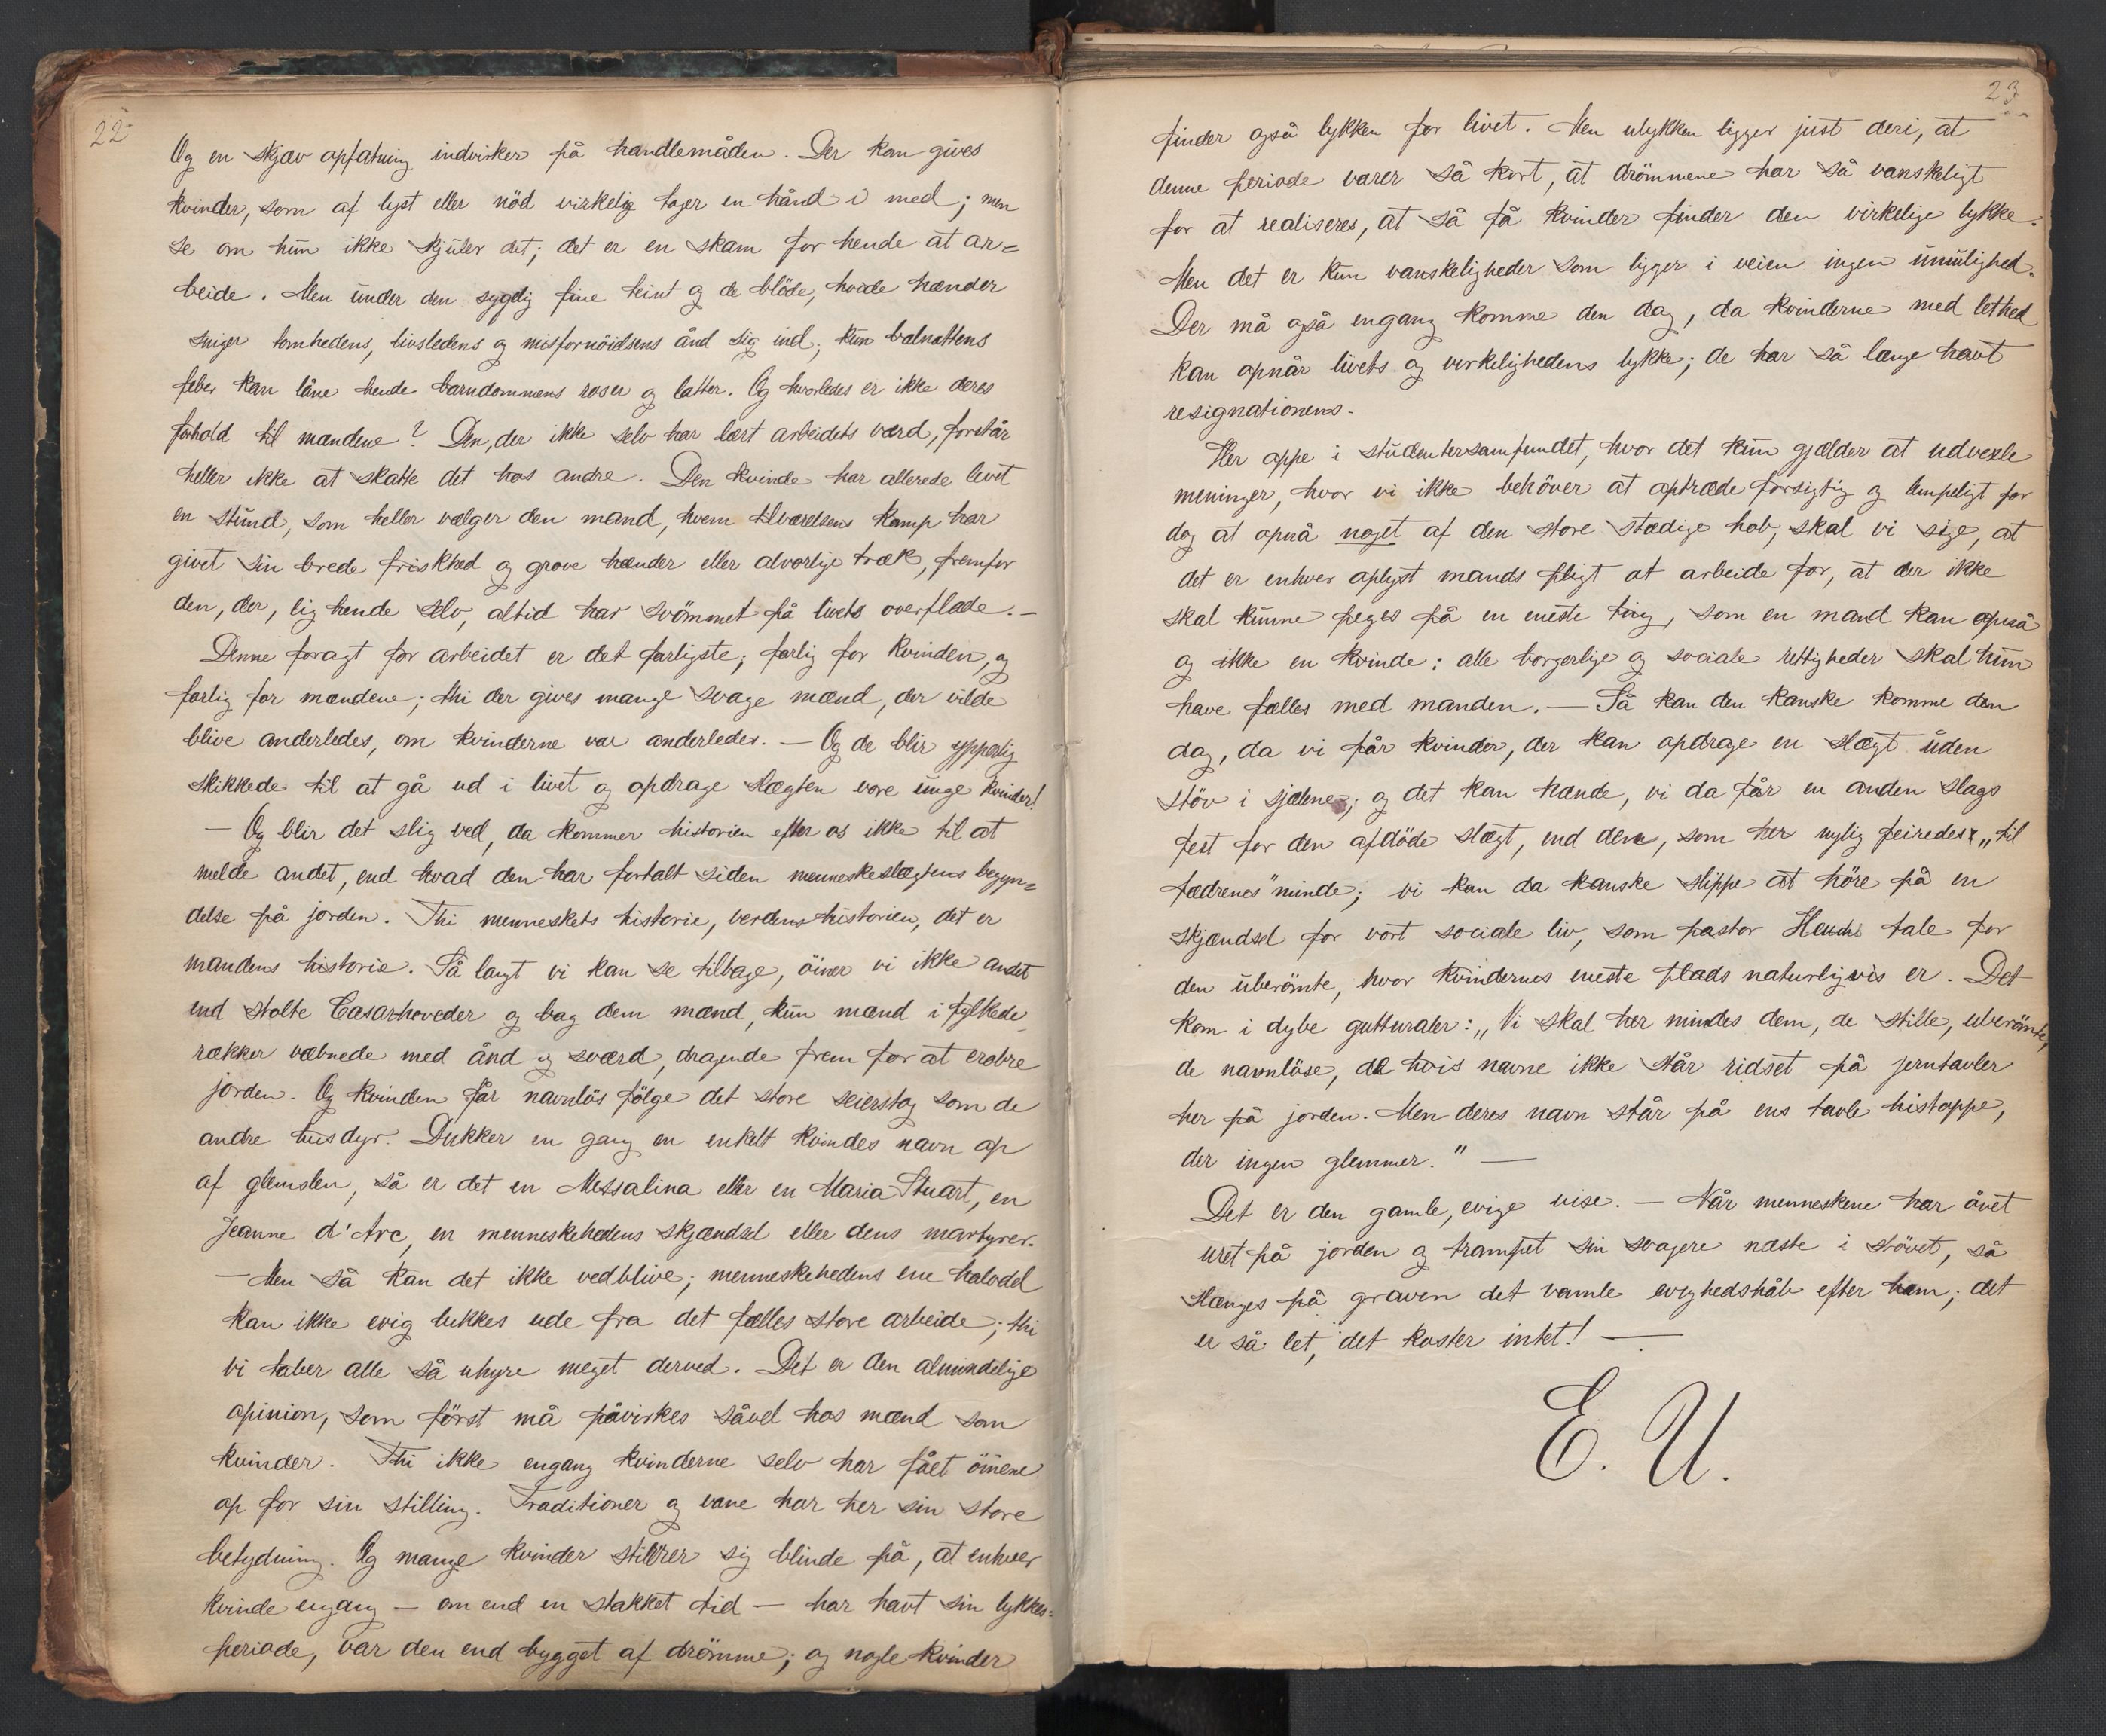 22
Og en skjæv opfatning indvirker på handlemåden. Der kan gives
kvinder, som af lyst eller nöd virkelig tager en hånd i med; men
se om hun ikke skjuler det; det er en skam for hende at ar=
beide. Men under den sygelig fine teint og de blöde, hvide hænder
sniger tomhedens, livsledens og misfornöidsens ånd sig ind; kun balnattens
feber kan låne hende barndommens roser og latter. Og hvorledes er ikke deres
forhold til mændene? Den, der ikke selv har lært arbeidets værd, forstår
heller ikke at skatte det hos andre. Den kvinde har allerede levet
en stund, som heller vælger den mand, hvem tilværelsens kamp har
givet sin brede friskhed og grove hænder eller alvorlige træk, fremfor
den, der, lig hende selv, altid har svömmet på livets overflade. –
Denne foragt for arbeidet er det farligste; farlig for kvinden, og
farlig for mændene; thi der gives mange svage mænd, der vilde
blive anderledes, om kvinderne var anderledes. — Og de blir ypperlig
skikkede til at gå ud i livet og opdrage slægten vore unge kvinder!
— Og blir det slig ved, da kommer historien efter os ikke til at
melde andet, end hvad den har fortalt siden menneskeslægtens begyn=
delse på jorden. Thi menneskets historie, verdenshistorien, det er
mandens historie. Så langt vi kan se tilbage, öiner vi ikke andet
end stolte Cæsarhoveder og bag dem mænd, kun mænd i fylkede
rækker væbnede med ånd og sværd, dragende frem for at erobre
jorden. Og kvinden får navnlös fölge det store seierstog som de
andre husdyr. Dukker en gang en enkelt kvindes navn op
af glemslen, så er det en Messalina eller en Maria Stuart, en
Jeanne d'Arc, en menneskehedens skjændsel eller dens martyrer.
— Men så kan det ikke vedblive; menneskehedens ene halvdel
kan ikke evig lukkes ude fra det fælles store arbeide; thi
vi taber alle så uhyre meget derved. Det er den almindelige
opinion, som först må påvirkes såvel hos mænd som
kvinder. Thi ikke engang kvinderne selv har fået öinene
op for sin stilling. Traditioner og vane har her sin store
betydning. Og mange kvinder stirrer sig blinde på, at enhver
kvinde engang — om end en stakket tid — har havt sin lykkes=
periode, var den end bygget af drömme; og nogle kvinder
23
finder også lykken for livet. Men ulykken ligger just deri, at
denne periode varer så kort, at drömmene har så vanskeligt
for at realiseres, at så få kvinder finder den virkelige lykke.
Men det er kun vanskeligheder som ligger i veien ingen umulighed.
Der må også engang komme den dag, da kvinderne med lethed
kan opnår livets og virkelighedens lykke; de har så længe havt
resignationens.
Her oppe i studentersamfundet, hvor det kun gjælder at udvexle
meninger, hvor vi ikke behöver at optræde forsigtig og lempeligt for
dog at opnå noget af den store stædige hob, skal vi sige, at
det er enhver oplyst mands pligt at arbeide for, at der ikke
skal kunne peges på en eneste ting, som en mand kan opnå
og ikke en kvinde: alle borgerlige og sociale rettigheder skal hun
have fælles med manden. — Så kan den kanske komme den
dag, da vi får kvinder, der kan opdrage en slægt uden
stöv i sjælene; og det kan hænde, vi da får en anden slags
fest for den afdöde slægt, end den, som her nylig feiredes „til
fædrenes" minde; vi kan da kanske slippe at höre på en
skjændsel for vort sociale liv, som pastor Heuchs tale for
den uberömte, hvor kvindernes eneste plads naturligvis er. Det
kom i dybe gutturaler: „Vi skal her mindes dem, de stille, uberömte,
de navnlöse, de hvis navne ikke står ridset på jerntavler
her på jorden. Men deres navn står på ens tavle histoppe,
der ingen glemmer." —
Det er den gamle, evige vise. — Når menneskene har övet
uret på jorden og trampet sin svagere næste i stövet, så
slænges på graven det vamle evighedshåb efter ham; det
er så let, det koster intet! —
E. U.